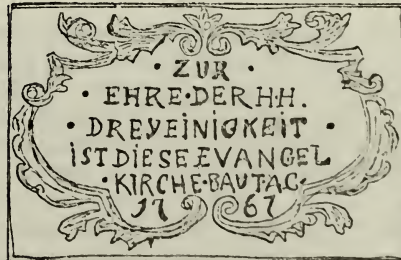 · ZUR ·
· EHRE·DER H·H.
· DREYEINIGKEIT ·
IST DIESE EVANGEL
·KIRCHE·BAUT A·C·
17 67